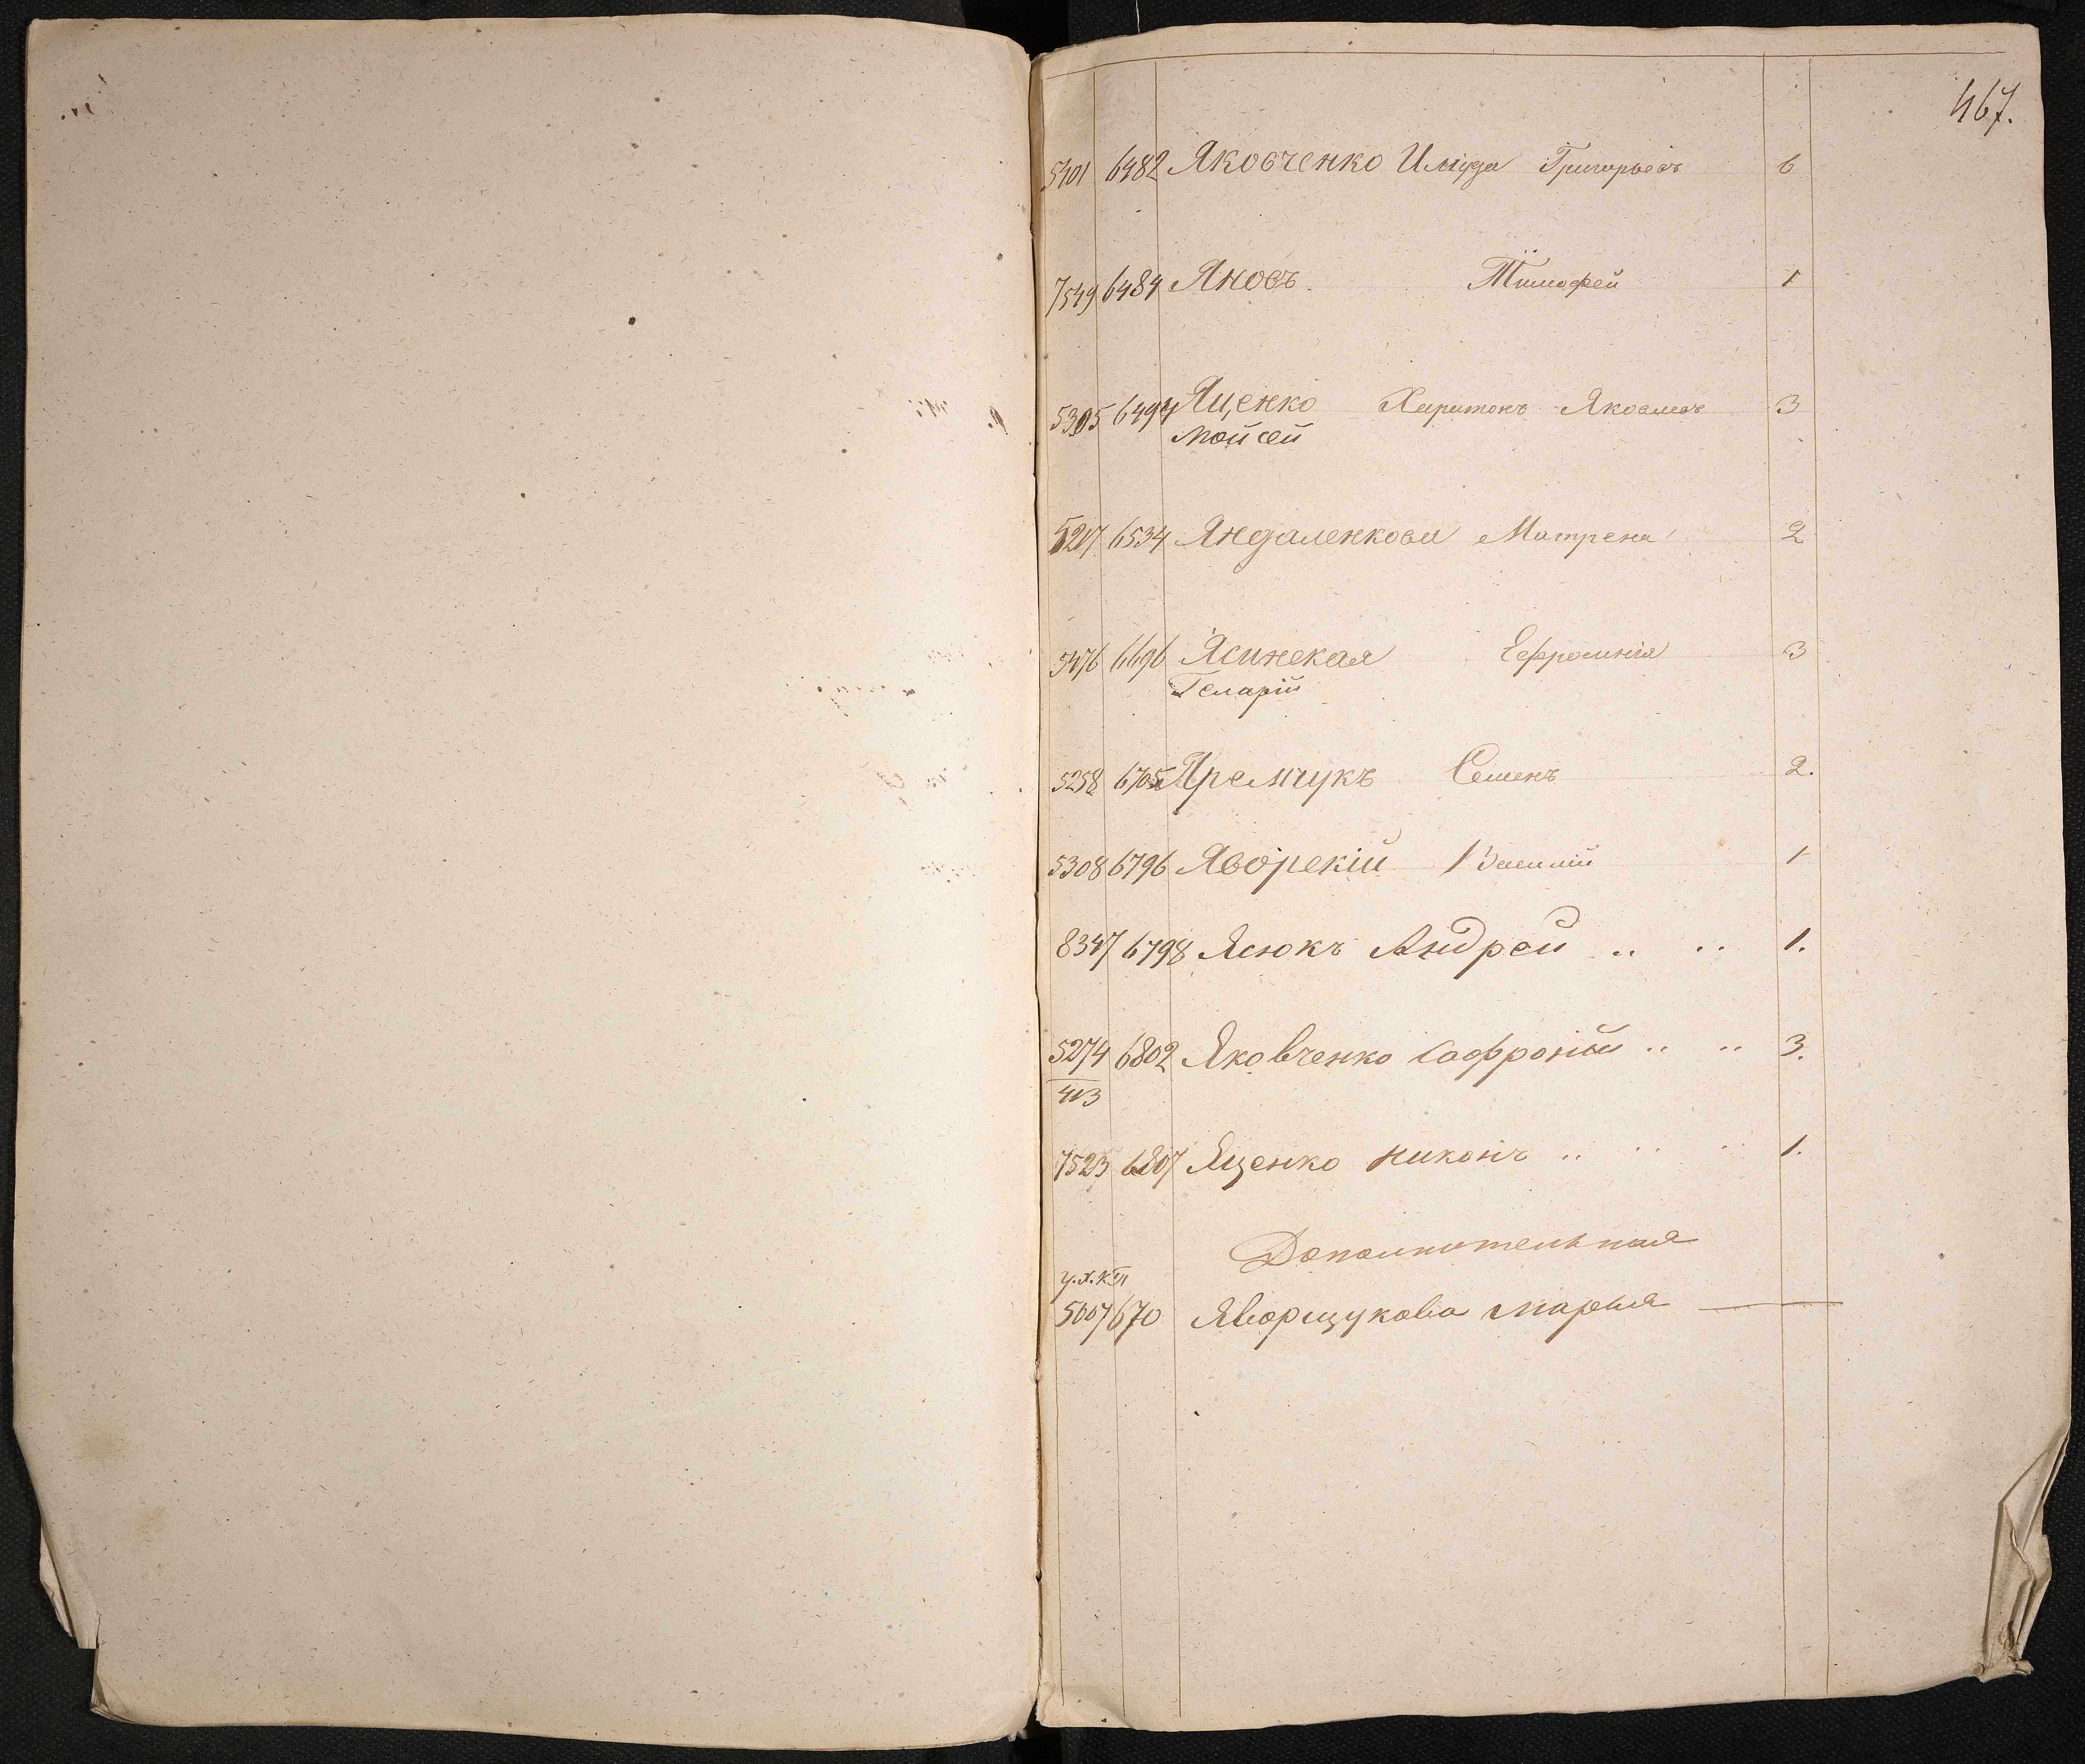 467.
5401 6482 Яковченко Григорьевъ 6
7549 6484 Яновъ. Тимофей 1
5305 6494 Яценко Харитонъ Яковлевъ 3
Мойсей
5217 6534 Яндаленкова Матрена 2
5476 6696 Ясинская Ефросинія 3
5258 6705 Яремчукъ Семенъ 2.
5308 6796 Яворскій Василій 1
8347 6798 Ясюкъ Андрей .. .. 1.
5274 6802 Яковченко Софроній .. .. 3.
413
7523 6807 Яценко Никонъ .. .. .. 1.
Дополнительная
5007 670 Яворщукова Марья —